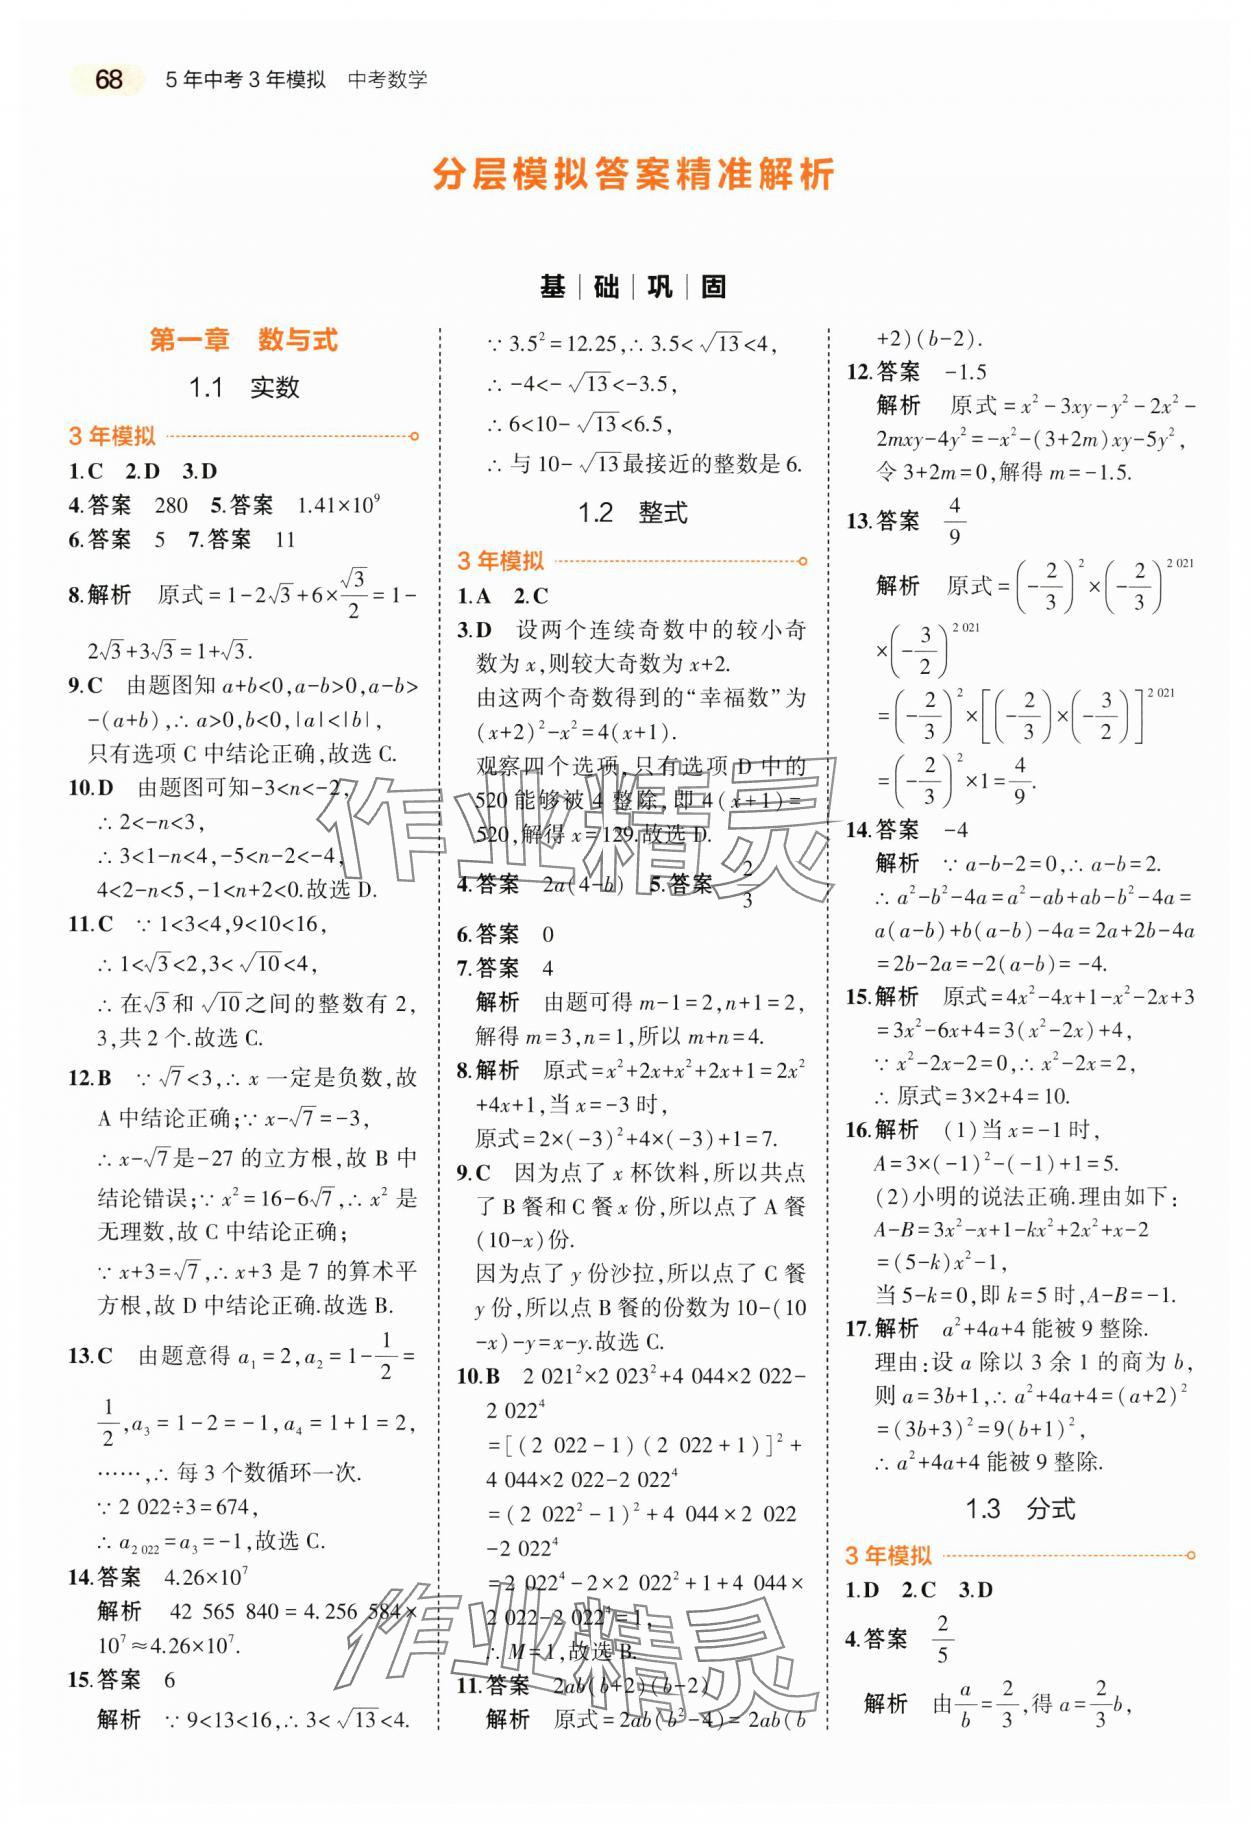 68 5年中考3年模拟 中考数学
分层模拟答案精准解析
基|础|巩|固
第一章 数与式
1.1 实数
3年模拟
1.C 2.D 3.D
4.答案 280 5.答案 1.41×10⁹
6.答案 5 7.答案 11
8.解析 原式=1-2√3+6×√3/2=1-
2√3+3√3=1+√3.
9.C 由题图知 a+b<0,a-b>0,a-b>
-(a+b),∴a>0,b<0,|a|<|b|,
只有选项 C 中结论正确,故选 C.
10.D 由题图可知-3<n<-2,
∴2<-n<3,
∴3<1-n<4,-5<n-2<-4,
4<2-n<5,-1<n+2<0.故选 D.
11.C ∵1<3<4,9<10<16,
∴1<√3<2,3<√10<4,
∴在√3和√10之间的整数有 2,
3,共 2 个.故选 C.
12.B ∵√7<3,∴x 一定是负数,故
A 中结论正确;∵x-√7=-3,
∴x-√7是-27 的立方根,故 B 中
结论错误;∵x²=16-6√7,∴x² 是
无理数,故 C 中结论正确;
∵x+3=√7,∴x+3 是 7 的算术平
方根,故 D 中结论正确.故选 B.
13.C 由题意得 a₁=2,a₂=1-1/2=
1/2,a₃=1-2=-1,a₄=1+1=2,
……,∴每 3 个数循环一次.
∵2 022÷3=674,
∴a₂ ₀₂₂=a₃=-1,故选 C.
14.答案 4.26×10⁷
解析 42 565 840=4.256 584×
10⁷≈4.26×10⁷.
15.答案 6
解析 ∵9<13<16,∴3<√13<4.
∵3.5²=12.25,∴3.5<√13<4,
∴-4<-√13<-3.5,
∴6<10-√13<6.5,
∴与 10-√13最接近的整数是 6.
1.2 整式
3年模拟
1.A 2.C
3.D 设两个连续奇数中的较小奇
数为 x,则较大奇数为 x+2.
由这两个奇数得到的“幸福数”为
(x+2)²-x²=4(x+1).
观察四个选项,只有选项 D 中的
520 能够被 4 整除,即 4(x+1)=
520,解得 x=129.故选 D.
4.答案 2a(4-b) 5.答案 2/3
6.答案 0
7.答案 4
解析 由题可得 m-1=2,n+1=2,
解得 m=3,n=1,所以 m+n=4.
8.解析 原式=x²+2x+x²+2x+1=2x²
+4x+1,当 x=-3 时,
原式=2×(-3)²+4×(-3)+1=7.
9.C 因为点了 x 杯饮料,所以共点
了 B 餐和 C 餐 x 份,所以点了 A 餐
(10-x)份.
因为点了 y 份沙拉,所以点了 C 餐
y 份,所以点 B 餐的份数为 10-(10
-x)-y=x-y.故选 C.
10.B 2 021²×2 023²+4 044×2 022-
2 022⁴
=[(2 022-1)(2 022+1)]²+
4 044×2 022-2 022⁴
=(2 022²-1)²+4 044×2 022
-2 022⁴
=2 022⁴-2×2 022²+1+4 044×
2 022-2 022⁴=1,
∴M=1,故选 B.
11.答案 2ab(b+2)(b-2)
解析 原式=2ab(b²-4)=2ab(b
+2)(b-2).
12.答案 -1.5
解析 原式=x²-3xy-y²-2x²-
2mxy-4y²=-x²-(3+2m)xy-5y²,
令 3+2m=0,解得 m=-1.5.
13.答案 4/9
解析 原式=(-2/3)²×(-2/3)^2 021
×(-3/2)^2 021
=(-2/3)²×[(-2/3)×(-3/2)]^2 021
=(-2/3)²×1=4/9.
14.答案 -4
解析 ∵a-b-2=0,∴a-b=2.
∴a²-b²-4a=a²-ab+ab-b²-4a=
a(a-b)+b(a-b)-4a=2a+2b-4a
=2b-2a=-2(a-b)=-4.
15.解析 原式=4x²-4x+1-x²-2x+3
=3x²-6x+4=3(x²-2x)+4,
∵x²-2x-2=0,∴x²-2x=2,
∴原式=3×2+4=10.
16.解析 (1)当 x=-1 时,
A=3×(-1)²-(-1)+1=5.
(2)小明的说法正确.理由如下:
A-B=3x²-x+1-kx²+2x²+x-2
=(5-k)x²-1,
当 5-k=0,即 k=5 时,A-B=-1.
17.解析 a²+4a+4 能被 9 整除.
理由:设 a 除以 3 余 1 的商为 b,
则 a=3b+1,∴a²+4a+4=(a+2)²
=(3b+3)²=9(b+1)²,
∴a²+4a+4 能被 9 整除.
1.3 分式
3年模拟
1.D 2.C 3.D
4.答案 2/5
解析 由a/b=2/3,得 a=2/3b,
作业精灵
作业精灵